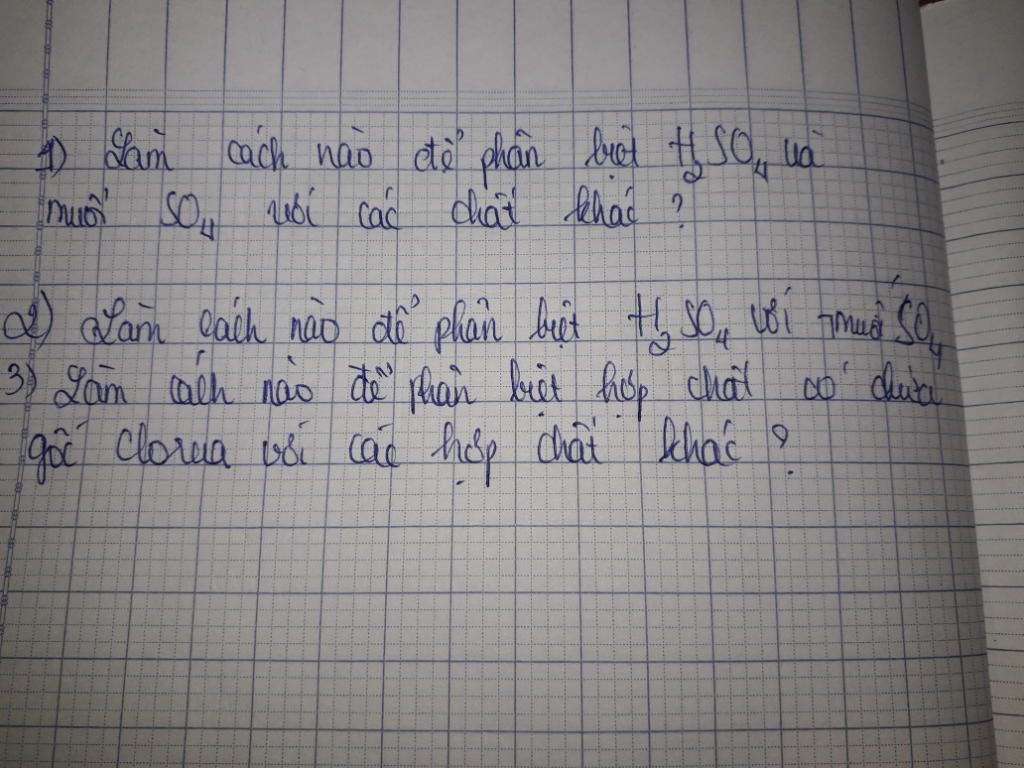 1) Làm cách nào để phân biệt H₂SO₄ và
muối SO₄ với các chất khác ?
2) Làm cách nào để phân biệt H₂SO₄ với muối SO₄
3) Làm cách nào để phân biệt hợp chất có chứa
gốc clorua với các hợp chất khác ?